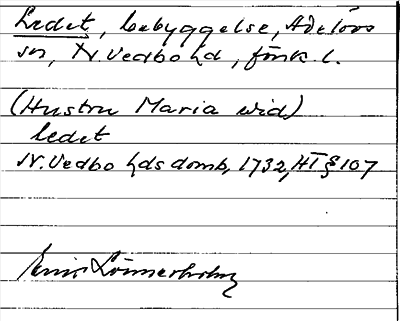 Ledet, bebyggelse, Adelövs
sn, N. Vedbo hd, Jönk. l.
(Hustru Maria wid)
ledet
N. Vedbo hds domb, 1732, HT § 107
Lönnerholm